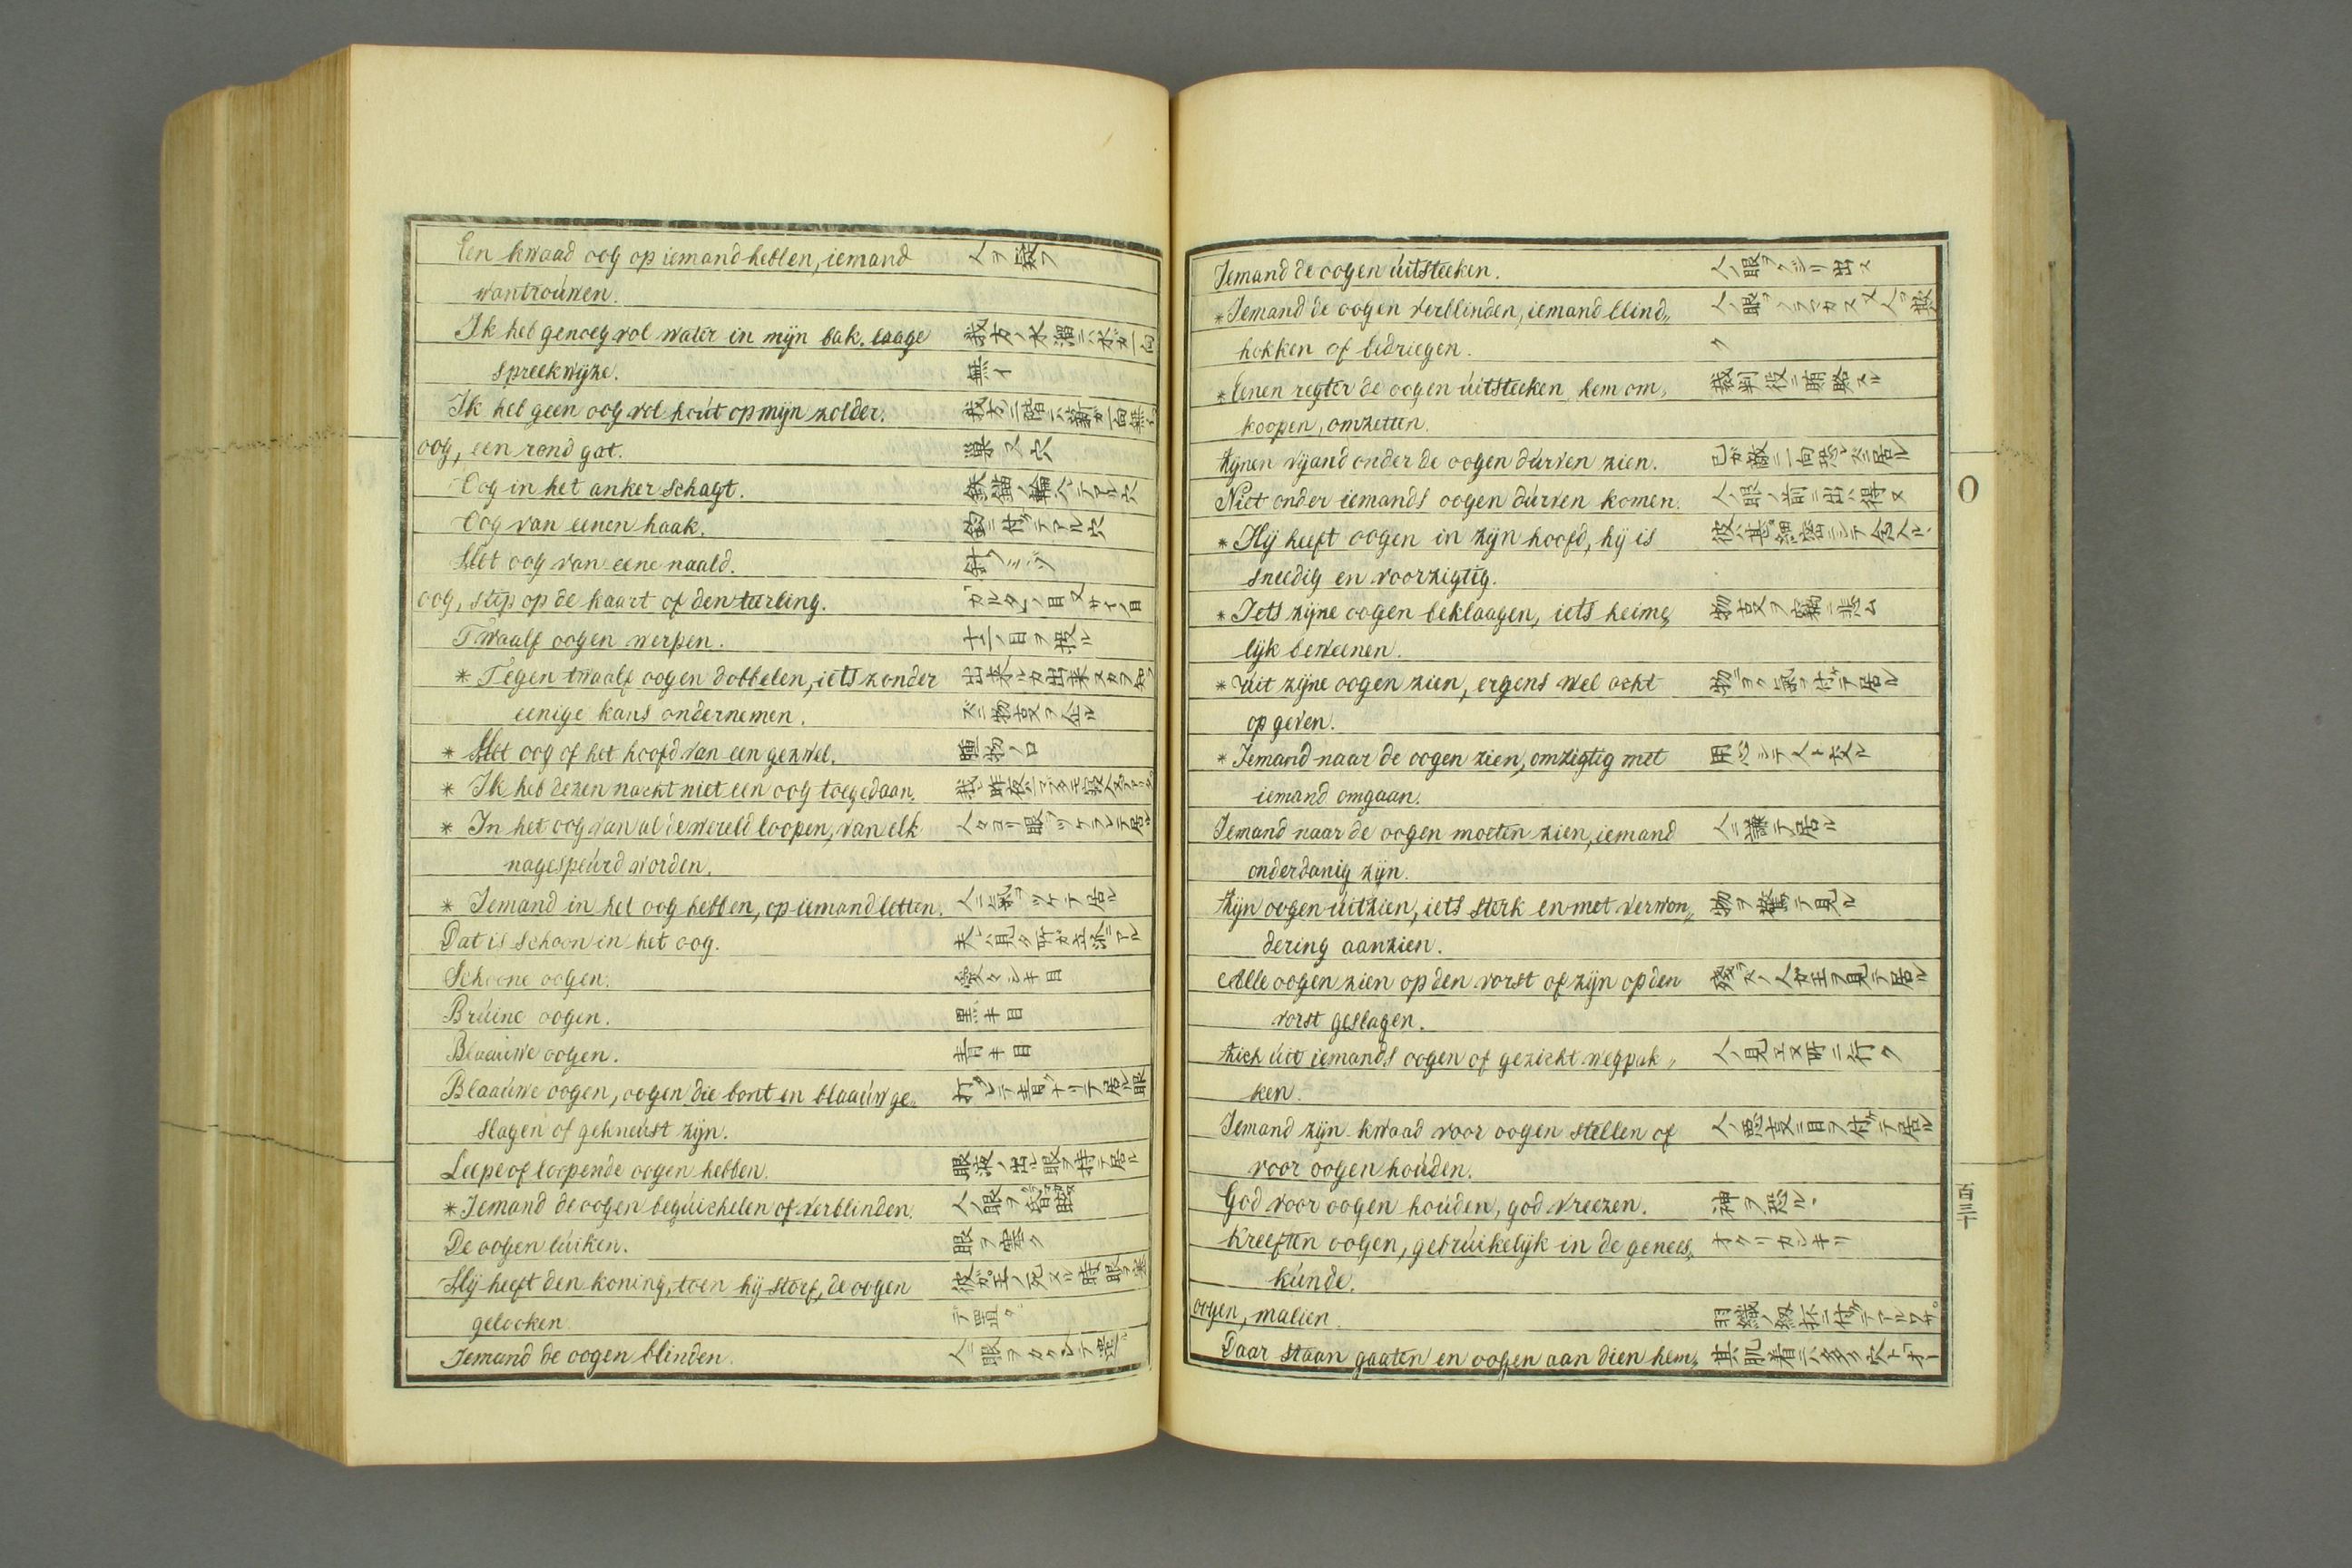 Een kwaad oog op iemand hebben, iemand 人ヲ疑フ
wantroúwen.
Ik heb genoeg vol water in mijn bak. laage
spreekwijze. 無イ
Ik heb geen oog vol hoút op mijn zolder.
oog, een rond gat. 巣又穴
Oog in het anker schagt.
Oog van eenen haak. 鈎ニ付テアル穴
Het oog van eene naald. 針ノミゾ
oog, stip op de kaart of den teerling. カルタノ目又サイノ目
Twaalf oogen werpen. 十二ノ目ヲ投ル
* Tegen twaalf oogen dobbelen, iets zonder 出来ルカ出来ヌカヲ知ラ
eenige kans ondernemen. ズニ物事ヲ企ル
* Het oog of het hoofd van een gezwel. 腫物ノ口
* Ik heb dezen nacht niet een oog toegedaan.
* In het oog van al de wereld loopen, van elk 人々ヨリ眼ヲツケラレテ居ル
nagespeúrd worden.
* Iemand in het oog hebben, op iemand letten. 人ニ氣ヲツケテ居ル
Dat is schoon in het oog. 夫ハ見タ所ガ立派ニアル
Schoone oogen. 愛タシキ目
Brúine oogen. 黒キ目
Blaaúwe oogen. 青キ目
Blaaúwe oogen, oogen die bont en blaaúw ge„ 打レテ青クナリテ居ル眼
slagen of gekneúst zijn.
Leepe of loopende oogen hebben. 眼液ノ出ル眼ヲ持テ居ル
* Iemand de oogen begúichelen of verblinden.
De oogen lúiken. 眼ヲ塞ク
Hij heeft den koning, toen hij storf, de oogen 彼ガ王ノ死ヌル時眼ヲ塞
gelooken. デ置ク
Iemand de oogen blinden.
Iemand de oogen úitsteeken. 人ノ眼ヲクジリ出ス
* Iemand de oogen verblinden, iemand blind„ 人ノ眼ヲクラカス又人ヲ欺
hokken of bedriegen. ク
* Eenen regter de oogen úitsteeken, hem om„ 裁判役ニ賄賂スル
koopen, omzetten.
Zijnen vijand onder de oogen dúrven zien. 己ガ敵ニ一向恐レズニ居ル
Niet onder iemands oogen dúrven komen. 人ノ眼ノ前ニ出ハ得ヌ
* Hij heeft oogen in zijn hoofd, hij is
sneedig en voorzigtig.
* Iets zijne oogen beklaagen, iets heime„ 物事ヲ竊ニ悲ム
lijk beweenen.
* Uit zijne oogen zien, ergens wel acht 物ニヨク氣ヲ付テ居ル
op geven.
* Iemand naar de oogen zien, omzigtig met 用心シテ人ト交ル
iemand omgaan.
Iemand naar de oogen moeten zien, iemand 人ニ謙テ居ル
onderdanig zijn.
Zijn oogen úitzien, iets sterk en met verwon„ 物ヲ驚テ見ル
dering aanzien.
Alle oogen zien op den vorst of zijn op den 殘ラスノ人ガ王ヲ見テ居ル
vorst geslagen.
Zich úit iemands oogen of gezicht wegpak„ 人ノ見エヌ所ニ行ク
ken.
Iemand zijn kwaad voor oogen stellen of 人ノ悪事ニ目ヲ付テ居ル
voor oogen hoúden.
God voor oogen hoúden, god vreezen. 神ヲ恐ル
Kreeften oogen, gebrúikelijk in de genees„ オクリカンキリ
kúnde.
oogen, malien.
Daar staan gaaten en oogen aan dien hem„
O
百三十